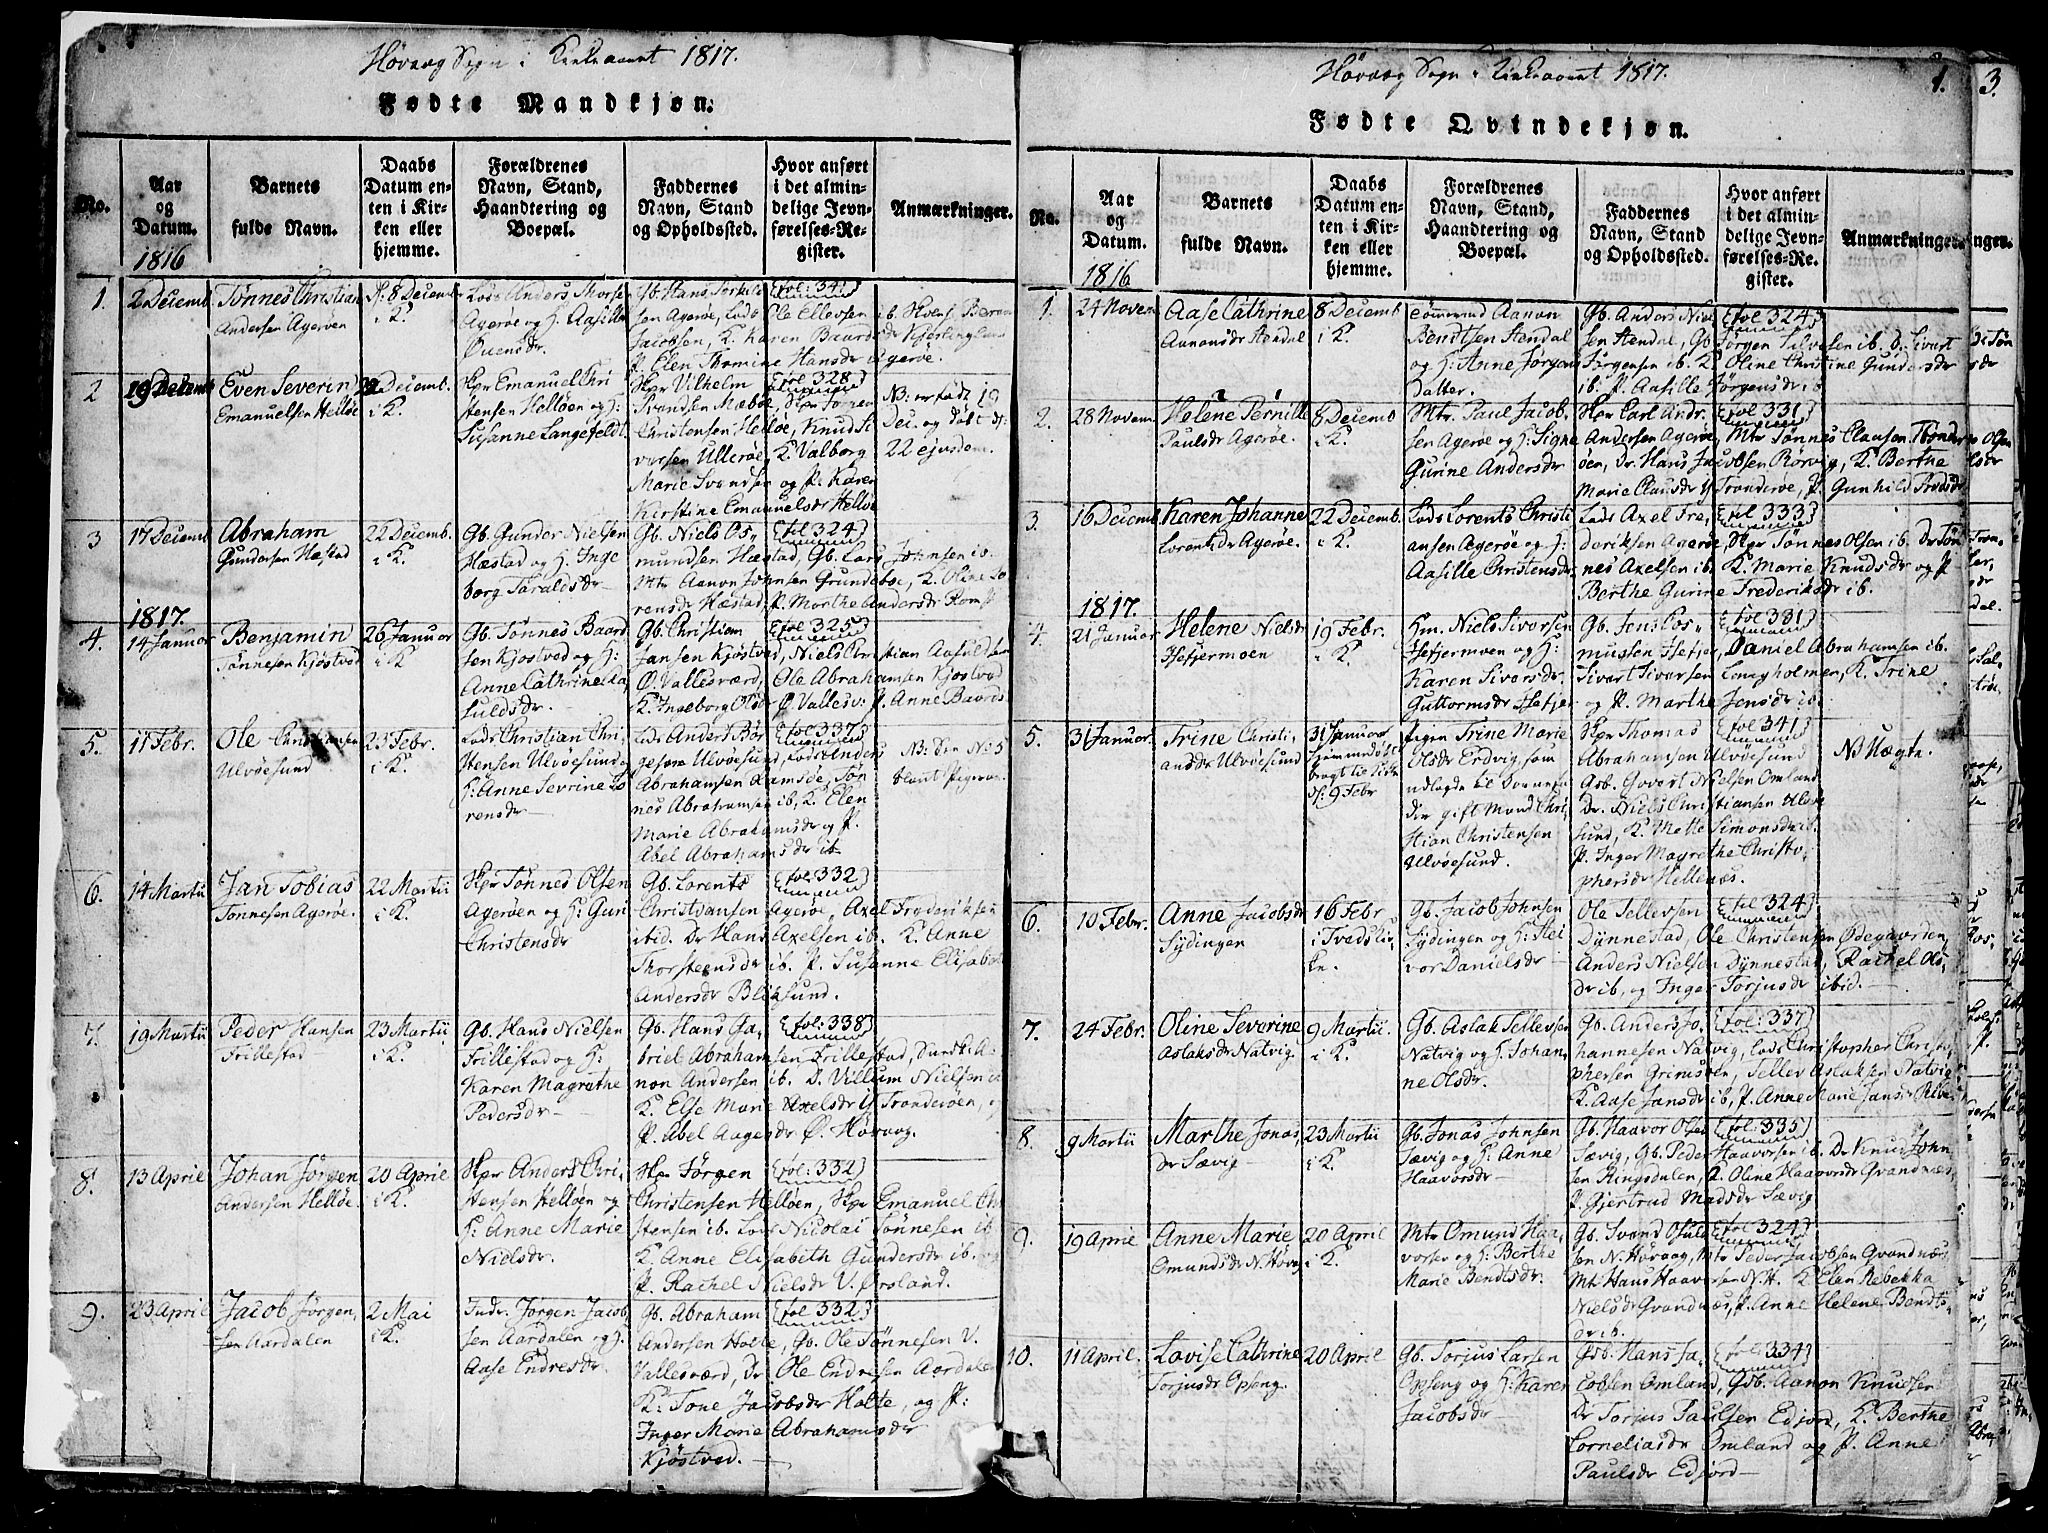 Høvaag Sogn i Kirkeaaret 1817.
Fødte Mandkjøn.
No.
Aar og Datum.
Barnets fulde Navn.
Daabs Datum enten i Kirken eller hjemme.
Forældrenes Navn, Stand, Haandtering og Boepæl.
Faddernes Navn, Stand og Opholdssted.
Hvor anført i det almindelige Jevnførelses-Register.
Anmærkninger.
1816
1.
2 Decemb
Tønnes Christian
Andersen Agerøen
8 Decemb
i K.
Lods Anders Thorsen
Agerøe og H. Aasille
Ovensdr.
Gb. Hans Terkild
sen Agerøe, Lods Ole Ellevsen ib.
Jacobsen, K. Karen Baardsdr Kjerlingland
P. Elen Thomine Hansdr Agerøe.
fol: 341
2
19 Decemb
Even Severin
Emanuelsen Helløe
Decemb.
i K.
Skpr Emanuel Chri
stensen Helløen og H:
Susanne Langefeldt
Skpr Vilhelm
Svendsen Mæbøe, Skpr
Christensen Helløe, Knud Si
vorsen Ullerøe, K. Valborg
Marie Svendsdr og P. Karen
Kirstine Emanuelsdr Helløe
fol 328
NB: er født 19
Dec. og døbt d:
22 ejusdem.
3
17 Decemb
Abraham
Gundersen Hæstad
22 Decemb.
i K.
Gb. Gunder Nielsen
Hæstad og H. Inge
borg Taraldsdr
Gb. Niels Os-
mundsen Hæstad, Gb. Lars Johnsen ib.
Mtr Aanon Johnsen Grundebøe, K. Oline Lo
rensdr Hæstad, P. Marthe Andersdr Rom
fol 324
1817.
4
14 Januar
Benjamin
Tønnesen Kjøstved
26 Januar
i K
Gb. Tønnes Baard
sen Kjøstved og H:
Anne Cathrine
suldsdr
Gb. Christian
Jansen Kjøstved, Niels Christian Aasuldsen
Ø. Vallesværd, Ole Abrahamsen Kjøstved
K. Ingeborg Olsdr Ø. Vallesv: P. Anne Baards
fol: 325
5.
11 Febr.
Ole Christiansen
Ulvøesund
23 Febr.
i K.
Lods Christian Chri-
stensen Ulvøesund og
H: Anne Sevrine Lo
rensdr
Lods Anders Bør
gesen Ulvøesund, Lods Anders
Abrahamsen Ramsøe, Tøn
nes Abrahamsen ib, K. Elen
Marie Abrahamsdr og P.
Abel Abrahamsdr ib
fol: 337
NB: See No 5
blant Pigerne
6.
14 Martii
Jan Tobias
Tønnesen Agerøe.
22 Martii
i K.
Skpr Tønnes Olsen
Agerøen og H: Guri
Christensdr
Gb. Lorents
Christiansen Agerøe, Axel Fryderiksen
ibid. Dr Hans Axelsen ib. K. Anne
Thorsteensdr ib. P. Susanne Elisabet
Andersdr Bliksund.
fol. 332
7.
19 Martii
Peder Hansen
Trillestad
23 Martii
i K.
Gb. Hans Nielsen
Trillestad og H:
Karen Magrethe
Pedersdr
Gb. Hans Ga-
briel Abrahamsen Trillestad, A-
non Andersen ib. D. Villum Nielsen
K. Else Marie Axelsdr Y Tranderøen,
P. Abel Aagesdr Ø. Høvaag.
fol: 338
8.
13 Aprile
Johan Jørgen
Andersen Helløe.
20 Aprile
i K.
Skpr Anders Chri-
stensen Helløen og
H: Anne Marie
Nielsdr.
Skpr Jørgen
Christensen Helløen, Skpr Emanuel Chr
stensen ib. Lods Nicolai Tønnesen ib
K. Anne Elisabeth Gundersdr ib. og
P. Rachel Nielsdr V. Ørsland.
fol: 332
9.
23 April
Jacob Jørgen-
sen Aardalen
2 Mai
i K.
Indr. Jørgen Jacob
sen Aardalen og H.
Aase Endresdr
Gb. Abraham
Andersen Holte, Gb. Ole Tønnesen V.
Vallesværd, Dr. Ole Endresen Aardalen
K: Tone Jacobsdr Holte, og P:
Inger Marie Abrahamsdr
Kjøstved.
fol 332
Høvaag Sogn i Kirkeaaret 1817.
1.
3.
Fødte Qvindekjøn.
No.
Aar og Datum.
Barnets fulde Navn.
Daabs Datum enten i Kirken eller hjemme.
Forældrenes Navn, Stand, Haandtering og Boepæl.
Faddernes Navn, Stand og Opholdssted.
Hvor anført i det almindelige Jevnførelses-Register.
Anmærkninger.
1816
1.
24 Novem
Aase Cathrine
Aanonsdr Stendal
8 Decemb
i K.
Tømmermd Aanon
Bendtsen Stendal
og H: Anne Jørgens
datter.
Gb. Anders Niel
sen Stendal, Gb Jørgen ib. D. Sivert
Jørgensen ib. K. Oline Christine Gundersdr
ib. P. Aasille Jørgensdr ib
fol 324
2.
28 Novem
Helene Pernille
Paulsdr Agerøe.
8 Decemb
i K.
Mtr. Paul Jacob-
sen Agerøe og H: Signe
Gurine Andersdr
Skpr Carl Andr.
Andersen Agerøe, Mtr Tønnes Clausen Trander
øen, Dr. Hans Jacobsen Rørvig, K. Berthe
Marie Clausdr Y Tranderøe, P. Gunhild
fol 331
3.
16 Decemb.
Karen Johanne
Lorentsdr Agerøe.
22 Decemb.
i K.
Lods Lorents Christi
ansen Agerøe og H:
Aasille Christensdr
Lods Axel Fre-
deriksen Agerøe, Skpr Tønnes Olsen ib. Dr Tøn
nes Axelsen ib. K. Marie Knudsdr og P
Berthe Gurine Frederiksdr ib.
fol 333
1817.
4.
21 Januar
Helene Nielsdr
Isefjermoen
19 Febr.
i K.
Hm. Niels Sivorsen
Isefjermoen og H:
Karen Sivorsdr
Gb. Jens Ros-
mussen Isefjer, Daniel Abrahamsen ib.
Sivort Sivorsen Langholmen, K. Trine
Guttormsdr Isefjer og P. Marthe Jensdr ib
fol 381
5.
31 Januar.
Trine Christi-
ansdr Ulvøesund
31 Januar
hjemmedøbt
bragt til Kirke
d: 9 Febr
Pigen Trine Marie
Olsdr Erdvig, som
udlagde til Barnefa
der gift Mand Chri-
stian Christensen
Ulvøesund.
Skpr Thomas
Abrahamsen Ulvøesund
Gb. Govert Nielsen Omland
Dr. Niels Christiansen Ulvøe
sund, K. Mette Simonsdr ib.
P. Inger Magrethe Christo-
phersdr Hellenæs.
fol 341
NB Uægte.
6.
10 Febr.
Anne Jacobsdr
Sydingen
16 Febr
i Tvedskir-
ke.
Gb. Jacob Johnsen
Sydingen og H: Sei
vor Danielsdr
Ole Tellevsen
Dynnestad, Ole Christensen Ødegaarden,
Anders Nielsen Dynnestad, Rachel Ols-
dr ib, og Inger Torjusdr ibid.
fol 324
7.
24 Febr.
Oline Severine
Aslaksdr Natvig.
9 Martii.
i K.
Gb. Aslak Tellevsen
Natvig og H. Johan-
ne Olsdr.
Gb. Anders Jo-
hannesen Natvig, Lods Christopher Christo-
phersen Grimsøen, Tellev Aslaksen Natvig
K. Aase Jansdr ib, P. Anne Marie Jansdr
fol: 337
8.
9 Martii
Marthe Jonas-
dr Sævig
23 Martii
i K.
Gb. Jonas Johnsen
Sævig og H. Anne
Haavorsdr
Gb. Haavor Olsen
Sævig, Gb. Peder Haavorsen ib. Dr Knud John
sen Ringsdalen, K. Oline Haavorsdr Grandnæs,
P. Gjertrud Madsdr Sævig
fol. 335
9.
19 Aprie
Anne Marie
Omundsdr N. Høvag
20 April
i K.
Mtr Omund Haa-
vorsen og H: Berthe
Marie Bendtsdr.
Gb. Svend Osuld
sen N. Høvaag, Mtr Peder Jacobsen Grandnæs
Mtr Hans Haavorsen N.H. K Elen Rebekka
Nielsdr Grandnæs, P. Anne Helene Bendts-
dr ib.
fol 324
10.
11 April.
Lovise Cathrine
Torjusdr Opseng.
20 April
Gb. Torjus Larsen
Opseng og H: Karen
Jacobsdr
Gb. Hans Ja-
cobsen Omland, Gb. Aanon Knudsen
Dr Torjus Paulsen Edjord, K. Berthe
Corneliasdr Omland og P. Anne
Paulsdr Edjord
fol. 334